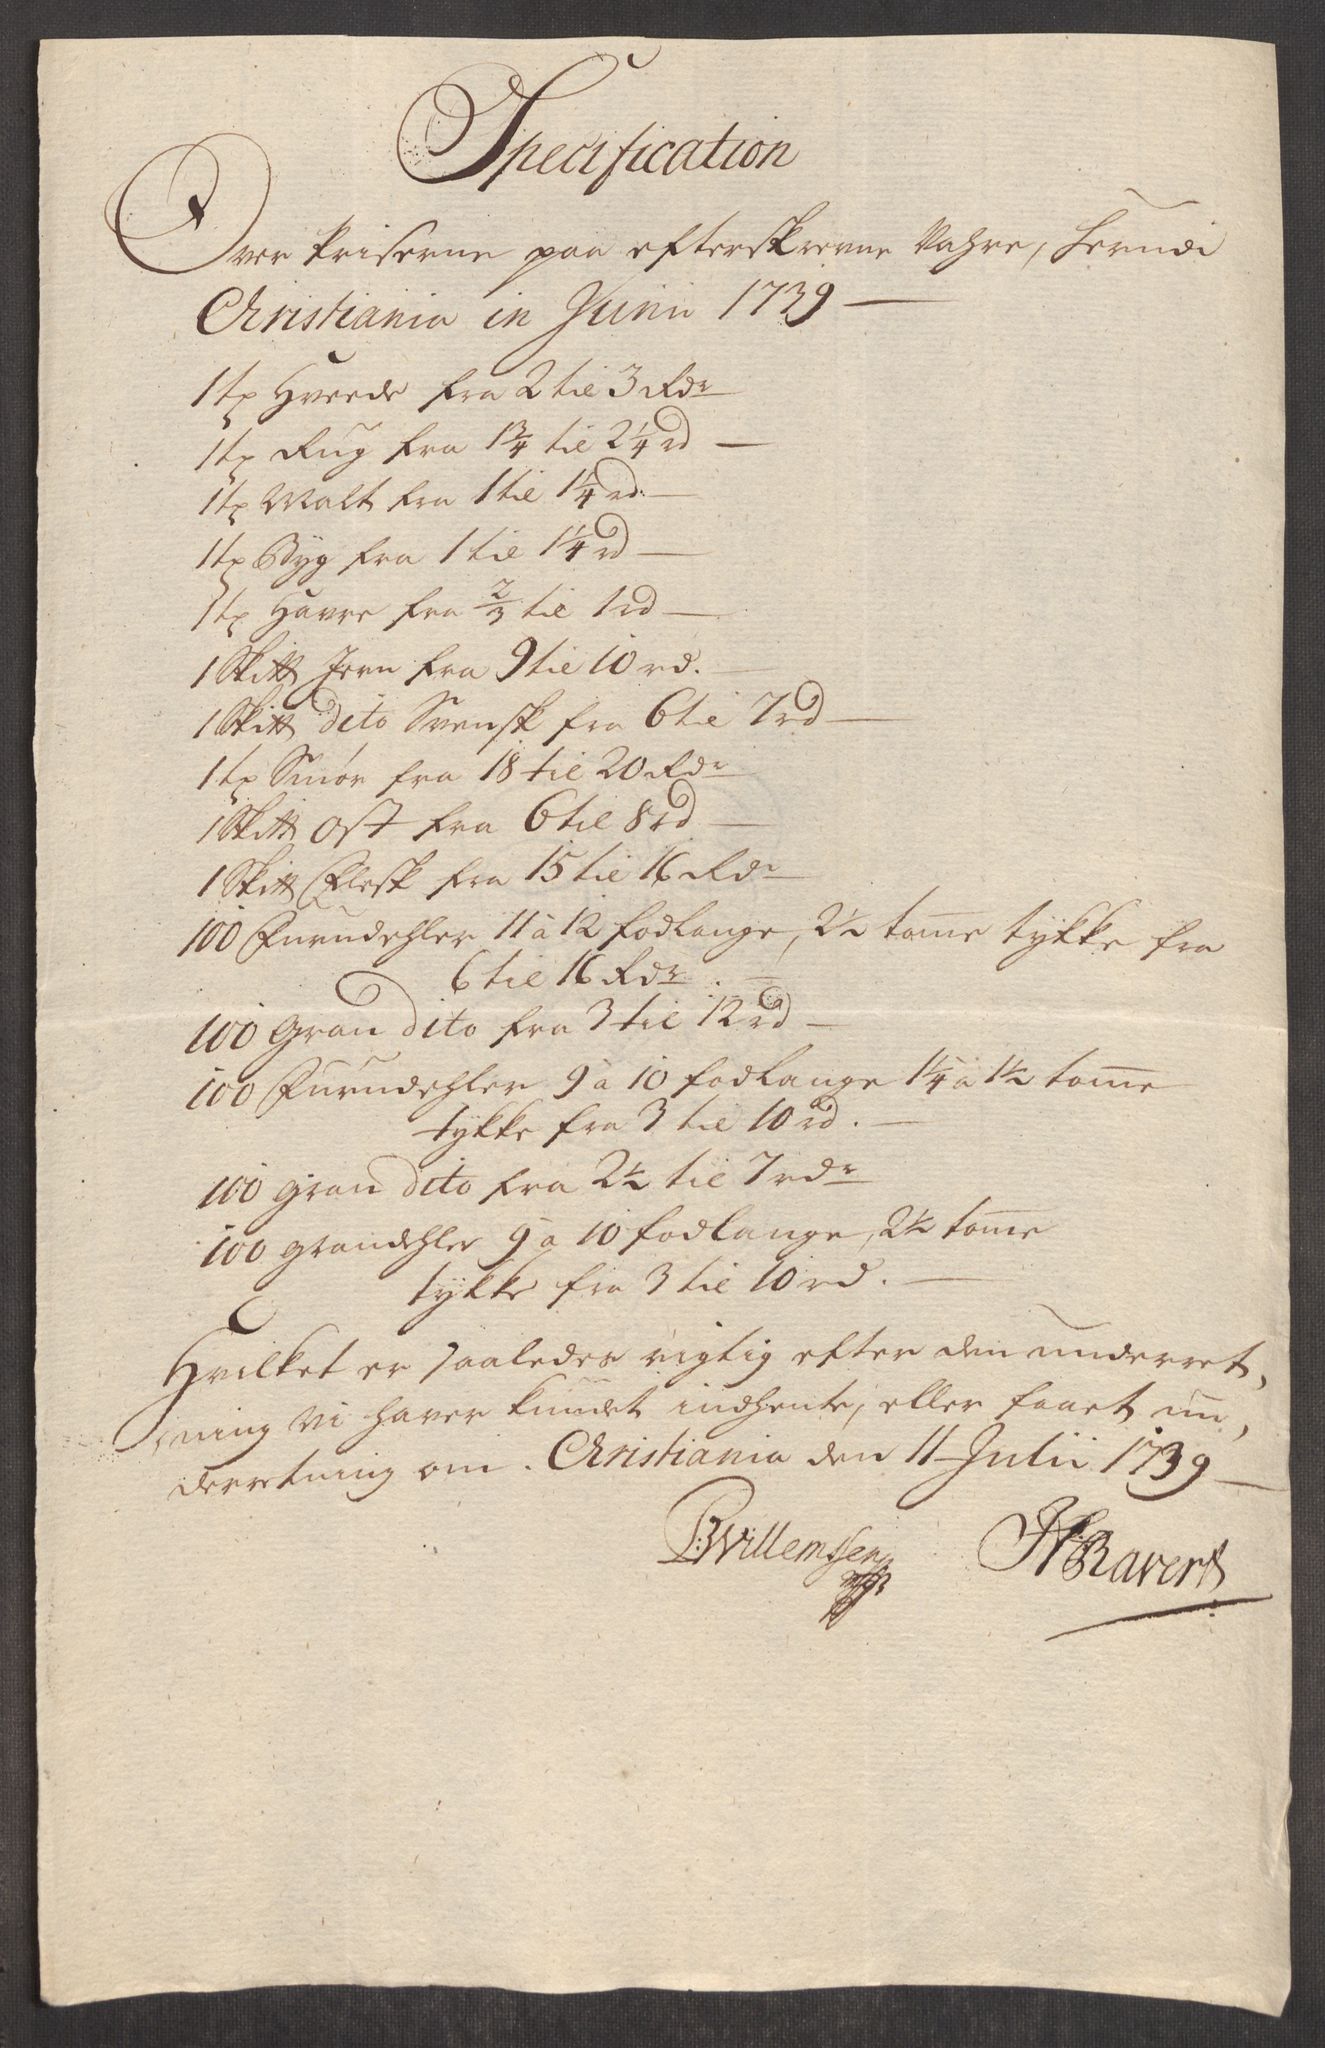 Specification
Over Priserne paa efterskrevne Vahre, herudi
Christiania in Junii 1739
1 tø Hvede fra 2 til 3 Rdr
1 tø Rug fra 1¾ til 2¼ rd
1 tø Malt fra 1 til 1¼ rd.
1 tø Byg fra 1 til 1¼ rd
1 tø Havre fra ⅔ til 1 rd
1 Skitt Jern fra 9 til 10 rd.
1 Skitt dito Svensk fra 6 til 7 rd
1 tø Smør fra 18 til 20 Rdr
1 Skitt Ost fra 6 til 8 rd
1 Skitt Flesk fra 15 til 16 Rdr
100 Furudehler 11 à 12 fodLange, 2½ tome tykke fra
6 til 16 Rdr.
100 Gran dito fra 3 til 12 rd
100 Furudehler 9 à 10 fodLange 1¼ à 1½ tome
tykke fra 3 til 10 rd.
100 gran dito fra 2½ til 7 rdr
100 grandehler 9 à 10 fodlange, 2½ tome
tykke fra 3 til 10 rd.
Hvilket er saaledes rigtig efter den underret,
ning vi haver kundet indhente, eller faaet un,
derretning om. Christiania den 11 Julii 1739
BWillemssen HRavert